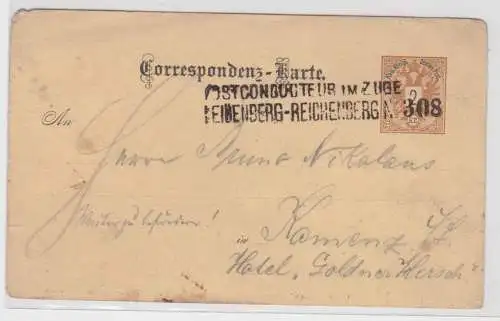 Correspondenz-Karte.
POSTCONDUCTEUR IM ZUGE
SEIDENBERG-REICHENBERG N. 308
2
An
Herrn Bruno Nikolaus
Weiterzubefördern!
in Kamenz i/S.
Hotel „Goldner Hirsch"